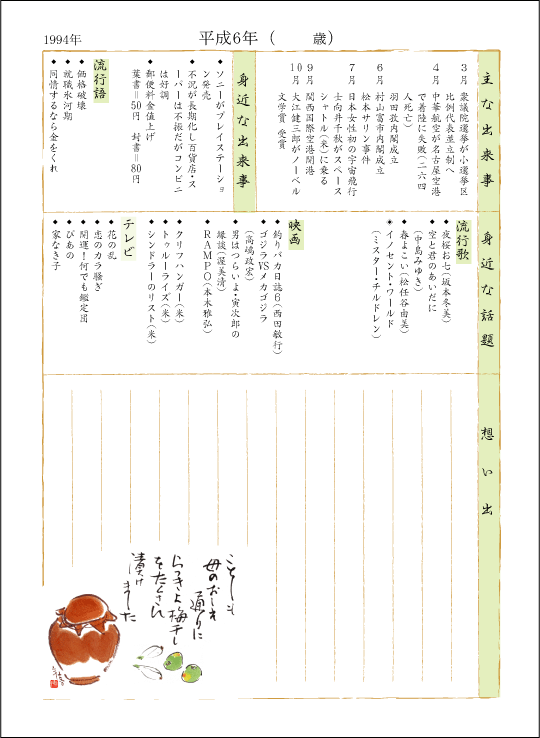 1994年
平成6年（　　歳）
主な出来事
3月 衆議院選挙が小選挙区
比例代表並立制へ
4月 中華航空が名古屋空港
で着陸に失敗（二六四
人死亡）
羽田孜内閣成立
6月 村山富市内閣成立
松本サリン事件
7月 日本女性初の宇宙飛行
士向井千秋がスペース
シャトル（米）に乗る
9月 関西国際空港開港
10月 大江健三郎がノーベル
文学賞 受賞
身近な出来事
◆ソニーがプレイステーショ
ン発売
◆不況が長期化し百貨店・ス
ーパーは不振だがコンビニ
は好調
◆郵便料金値上げ
葉書＝50円 封書＝80円
流行語
◆価格破壊
◆就職氷河期
◆同情するなら金をくれ
身近な話題
流行歌
◆夜桜お七（坂本冬美）
◆空と君のあいだに
（中島みゆき）
◆春よこい（松任谷由美）
◆イノセント・ワールド
（ミスター・チルドレン）
映画
◆釣りバカ日誌6（西田敏行）
◆ゴジラVSメカゴジラ
（高嶋政宏）
◆男はつらいよ・寅次郎の
縁談（渥美清）
◆RAMPO（本木雅弘）
◆クリフハンガー（米）
◆トゥルーライズ（米）
◆シンドラーのリスト（米）
テレビ
◆花の乱
◆恋のカラ騒ぎ
◆開運！何でも鑑定団
◆ぴあの
◆家なき子
想い出
ことしも
母のおしえ
通りに
らっきょ梅干し
をたくさん
漬け
ました